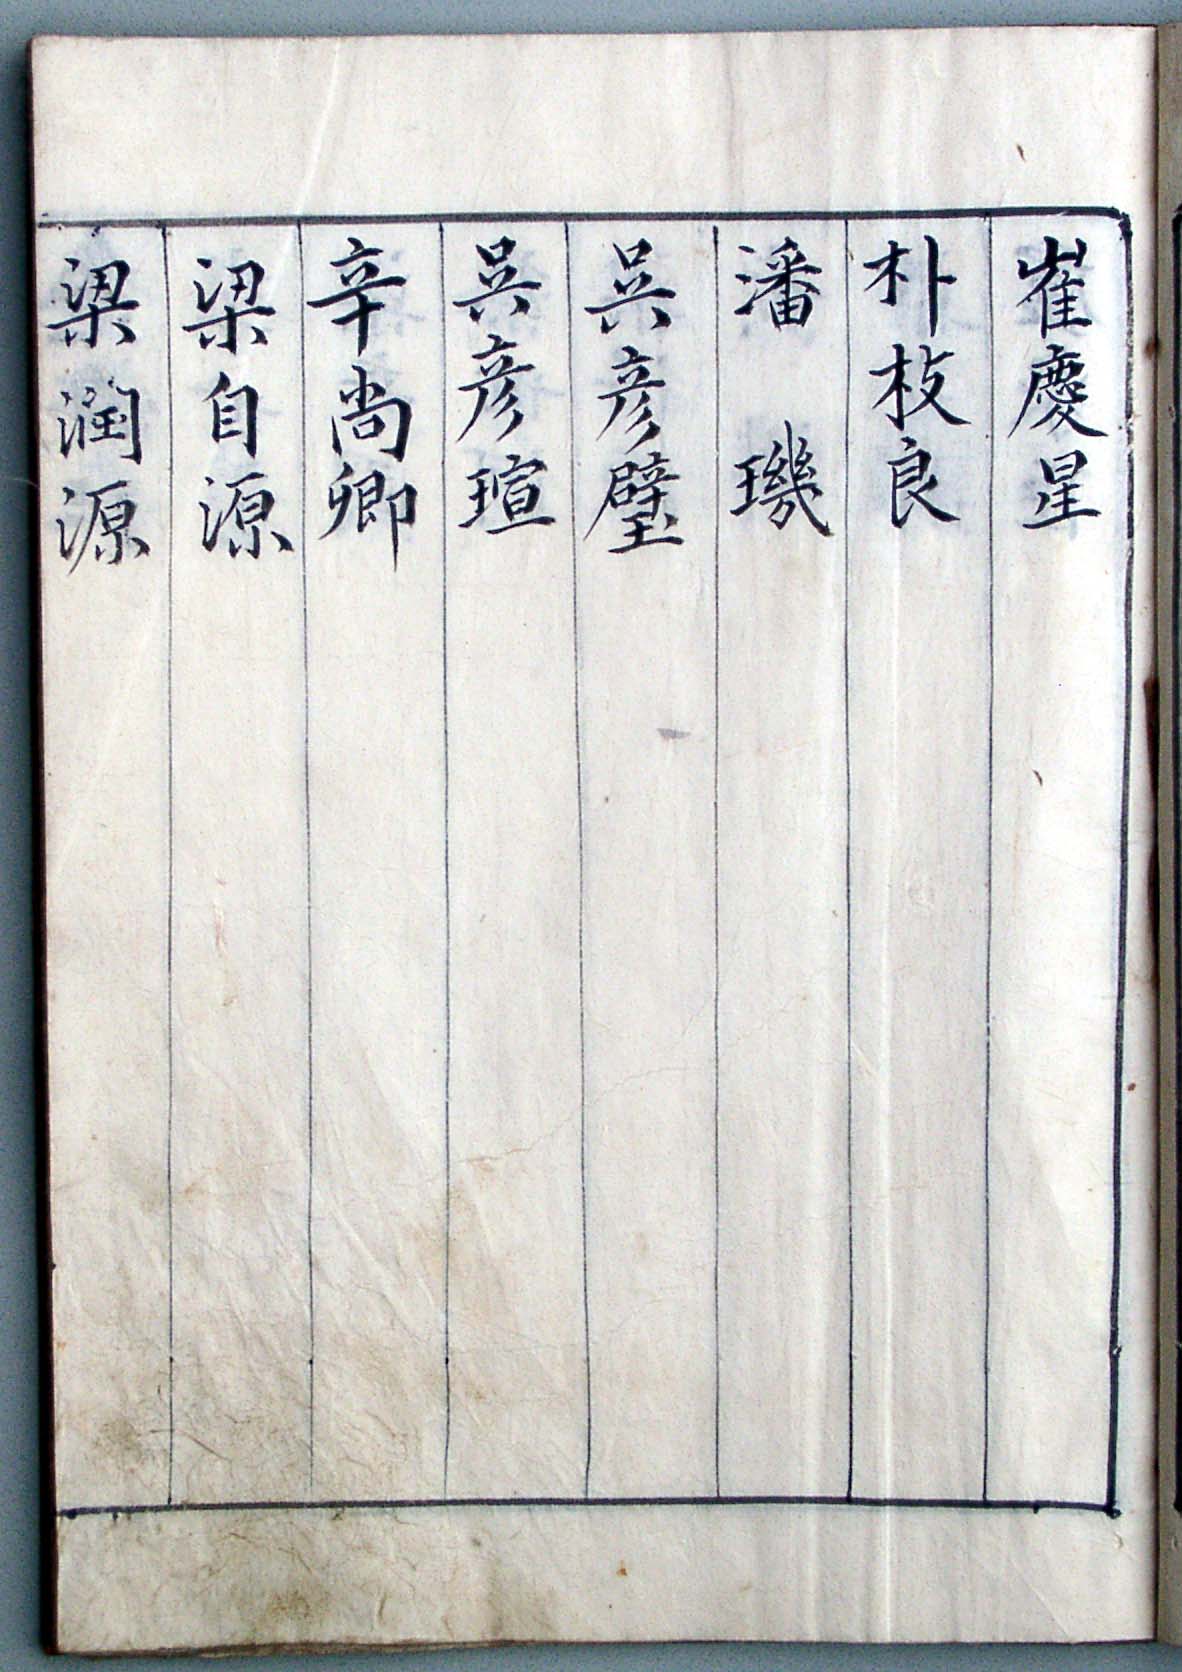 崔慶星
朴枝良
潘璣
吳彦璧
吳彦瑄
辛尚卿
梁自源
梁潤源